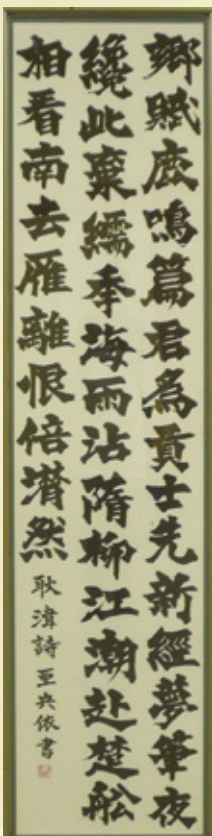 鄉賦鹿鳴篇君為貢士先新經夢筆夜
纔此棄繻秊海雨沾隋柳江潮赴楚舩
相看南去雁離恨倍潸然
耿湋詩 依書